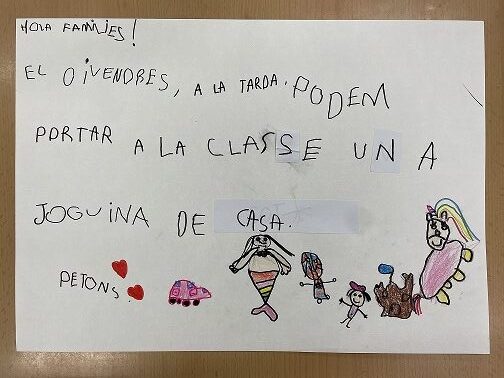 HOLA FAMÍLIES!
EL DIVENDRES, A LA TARDA. PODEM
PORTAR A LA CLASSE UN A
JOGUINA DE CASA.
PETONS.